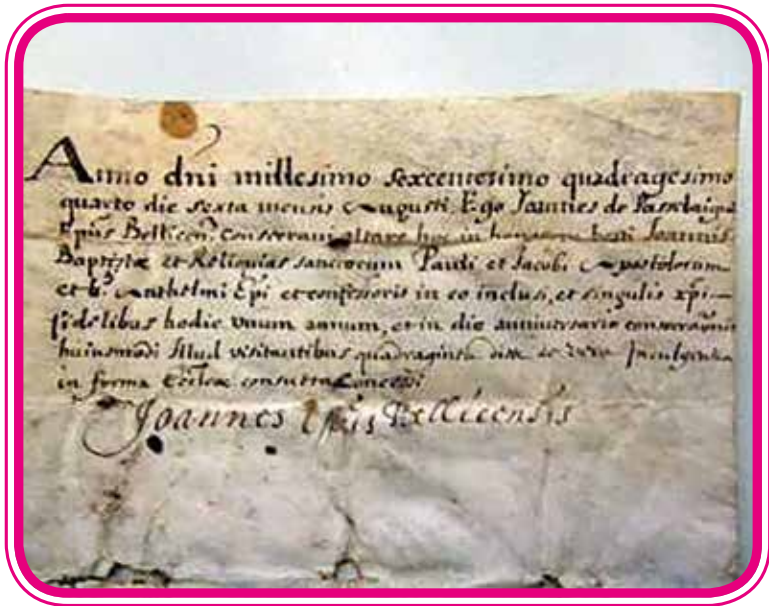 Anno dni millesimo sexcentesimo quadragesimo
quarto die sexta mensis Augusti. Ego Joannes de Passelaigue
Epũs Bellicen. consecravi altare hoc in honorem Joannis
Baptistæ et Reliquias sanctorum Pauli et Jacobi Apostolorum
et bi Anthelmi Epi et confessoris in eo inclusi, et singulis xpi–
fidelibus hodie vnum annum, et in die anniversario consecraõnis
huiusmodi illud visitantibus quadraginta dies de vera Indulgentia
in forma Ecclæ consueta concessi
Joannes Epũs Bellicensis